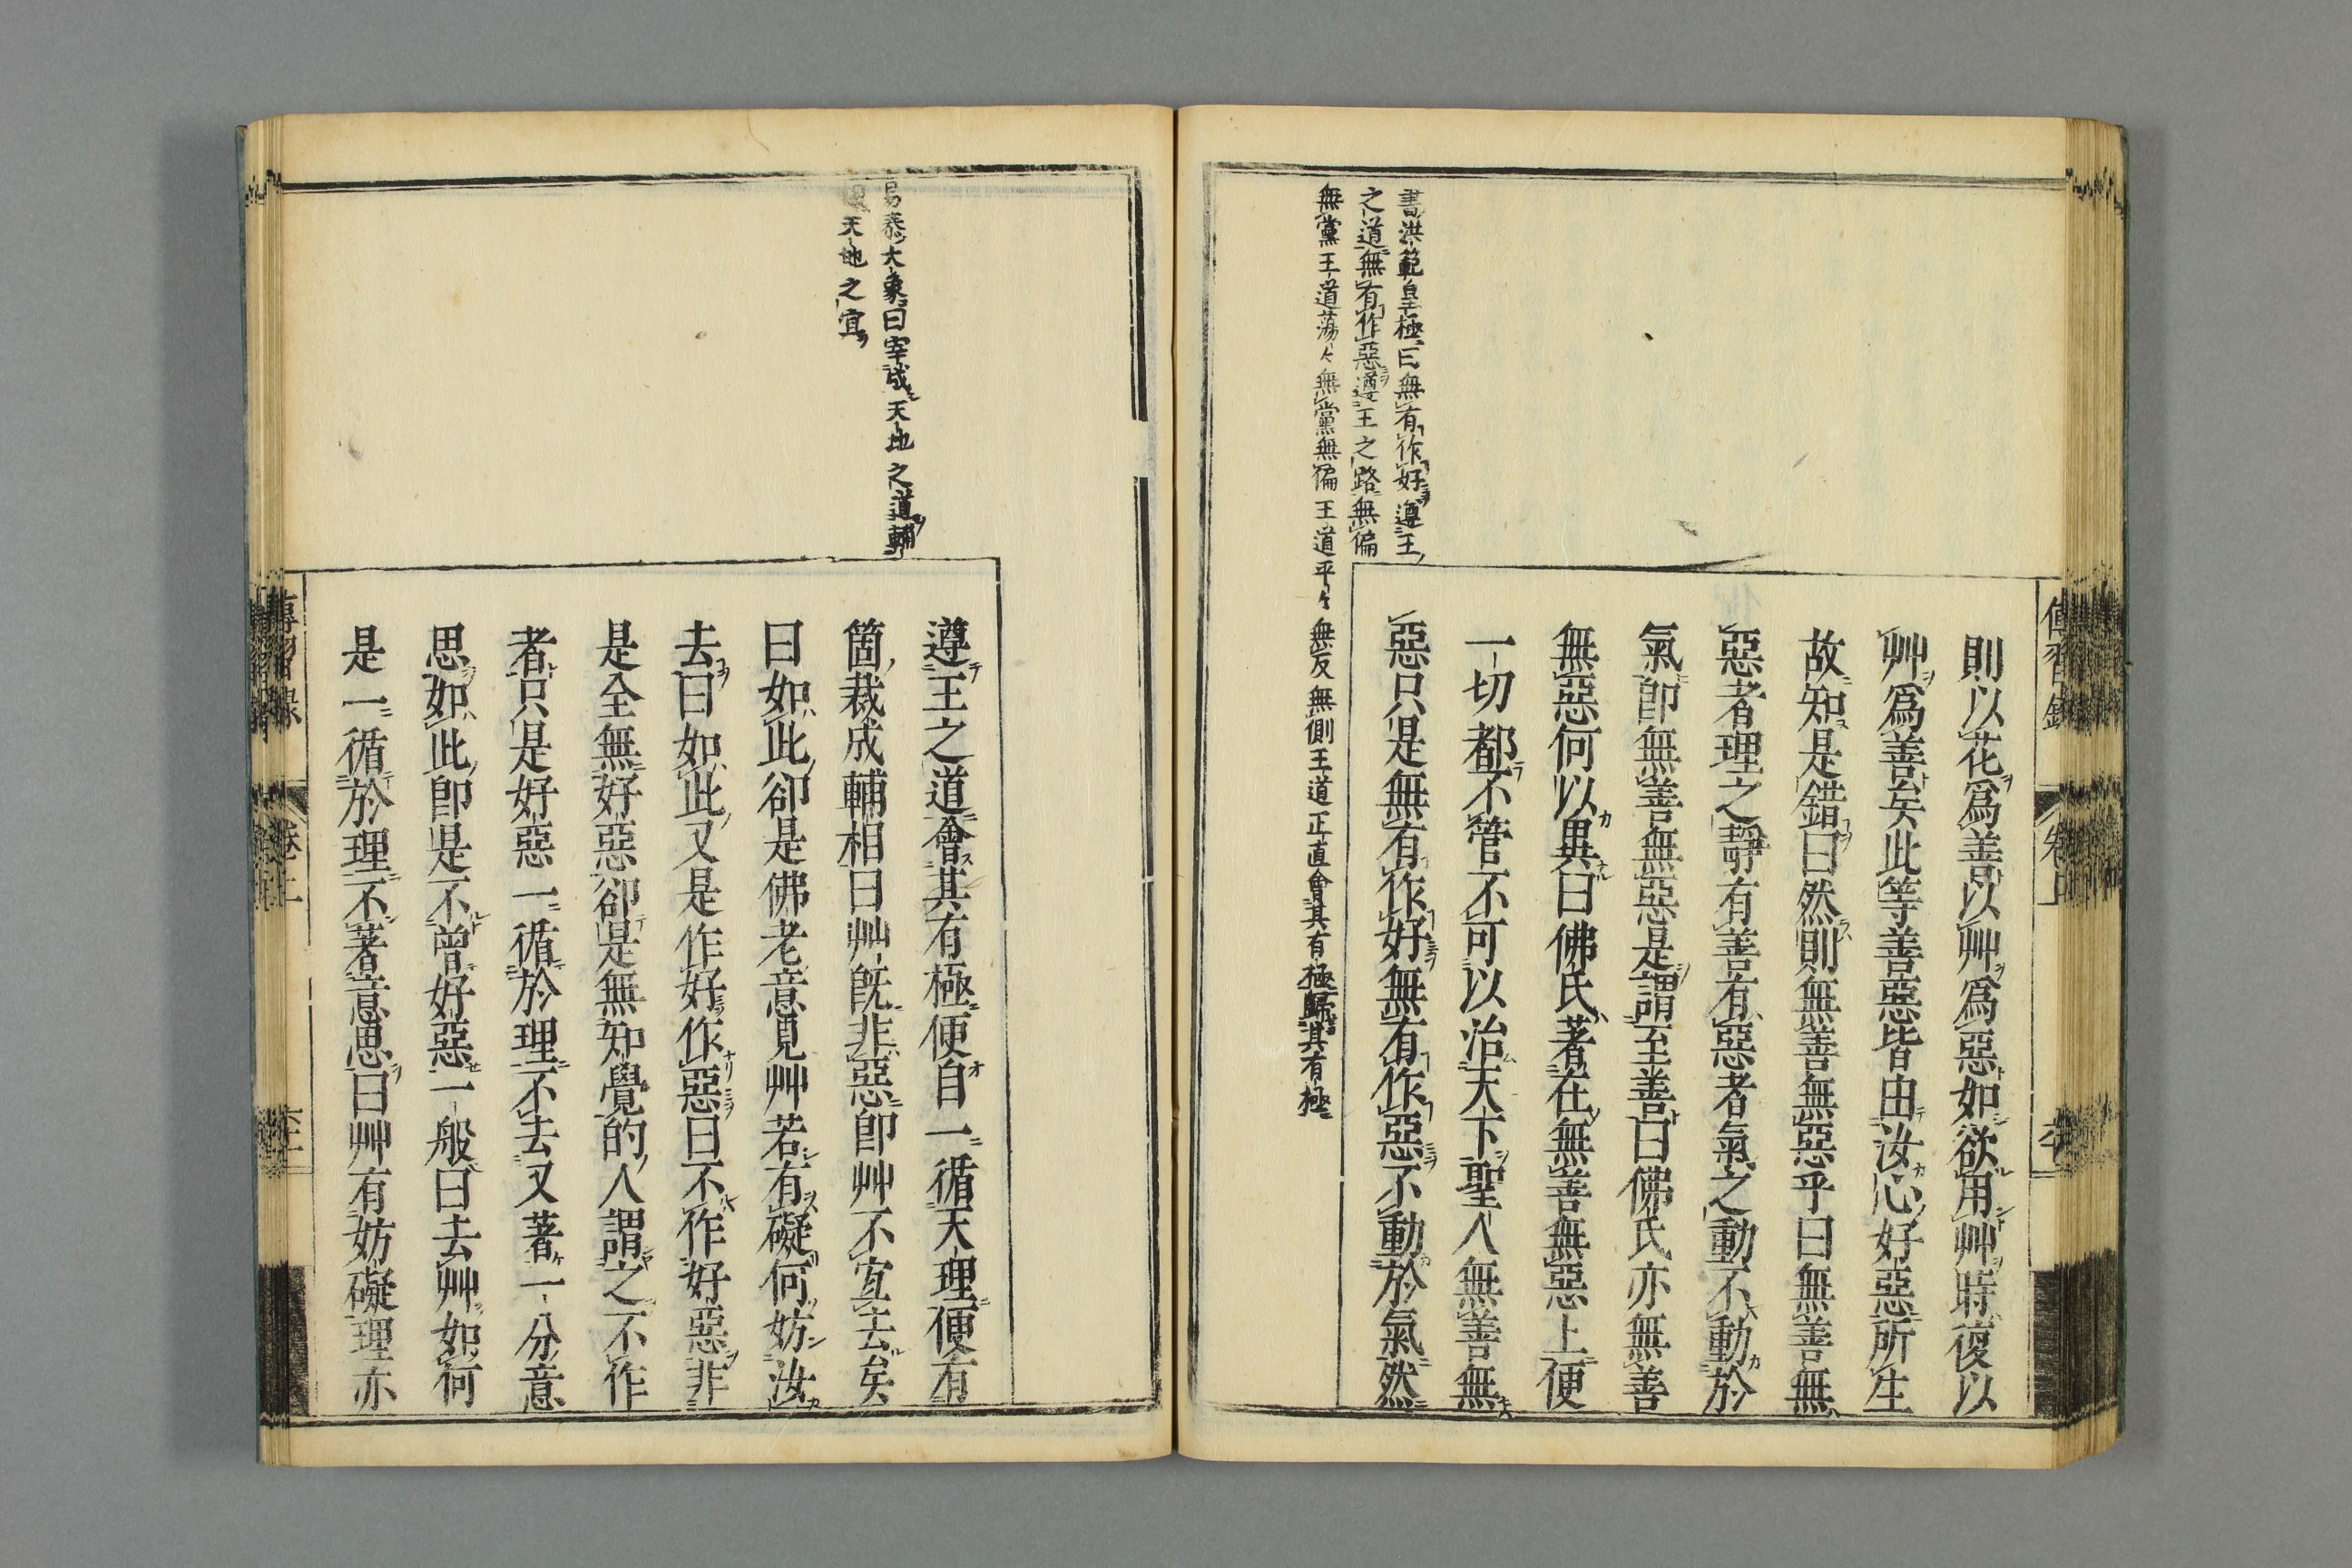 傳習錄
卷上
書洪範皇極曰無有作好遵王
之道無有作惡遵王之路無偏
無黨王道蕩々無黨無偏王道平々無反無側王道正直會其有極歸其有極
則以花爲善以艸爲惡如欲用艸時復以
艸爲善矣此等善惡皆由汝心好惡所生
故知是錯曰然則無善無惡乎曰無善無
惡者理之靜有善有惡者氣之動不動於
氣卽無善無惡是謂至善曰佛氏亦無善
無惡何以異曰佛氏著在無善無惡上便
一切都不管不可以治天下聖人無善無
惡只是無有作好無有作惡不動於氣然
易泰大象曰宰成天地之道輔
天地之宜
遵王之道會其有極便自一循天理便有
箇裁成輔相曰艸旣非惡卽艸不宜去矣
曰如此卻是佛老意見艸若有礙何妨汝
去曰如此又是作好作惡曰不作好惡非
是全無好惡卻是無知覺的人謂之不作
者只是好惡一循於理不去又著一分意
思如此卽是不曾好惡一般曰去艸如何
是一循於理不著意思曰艸有妨礙理亦
傳習錄
卷上